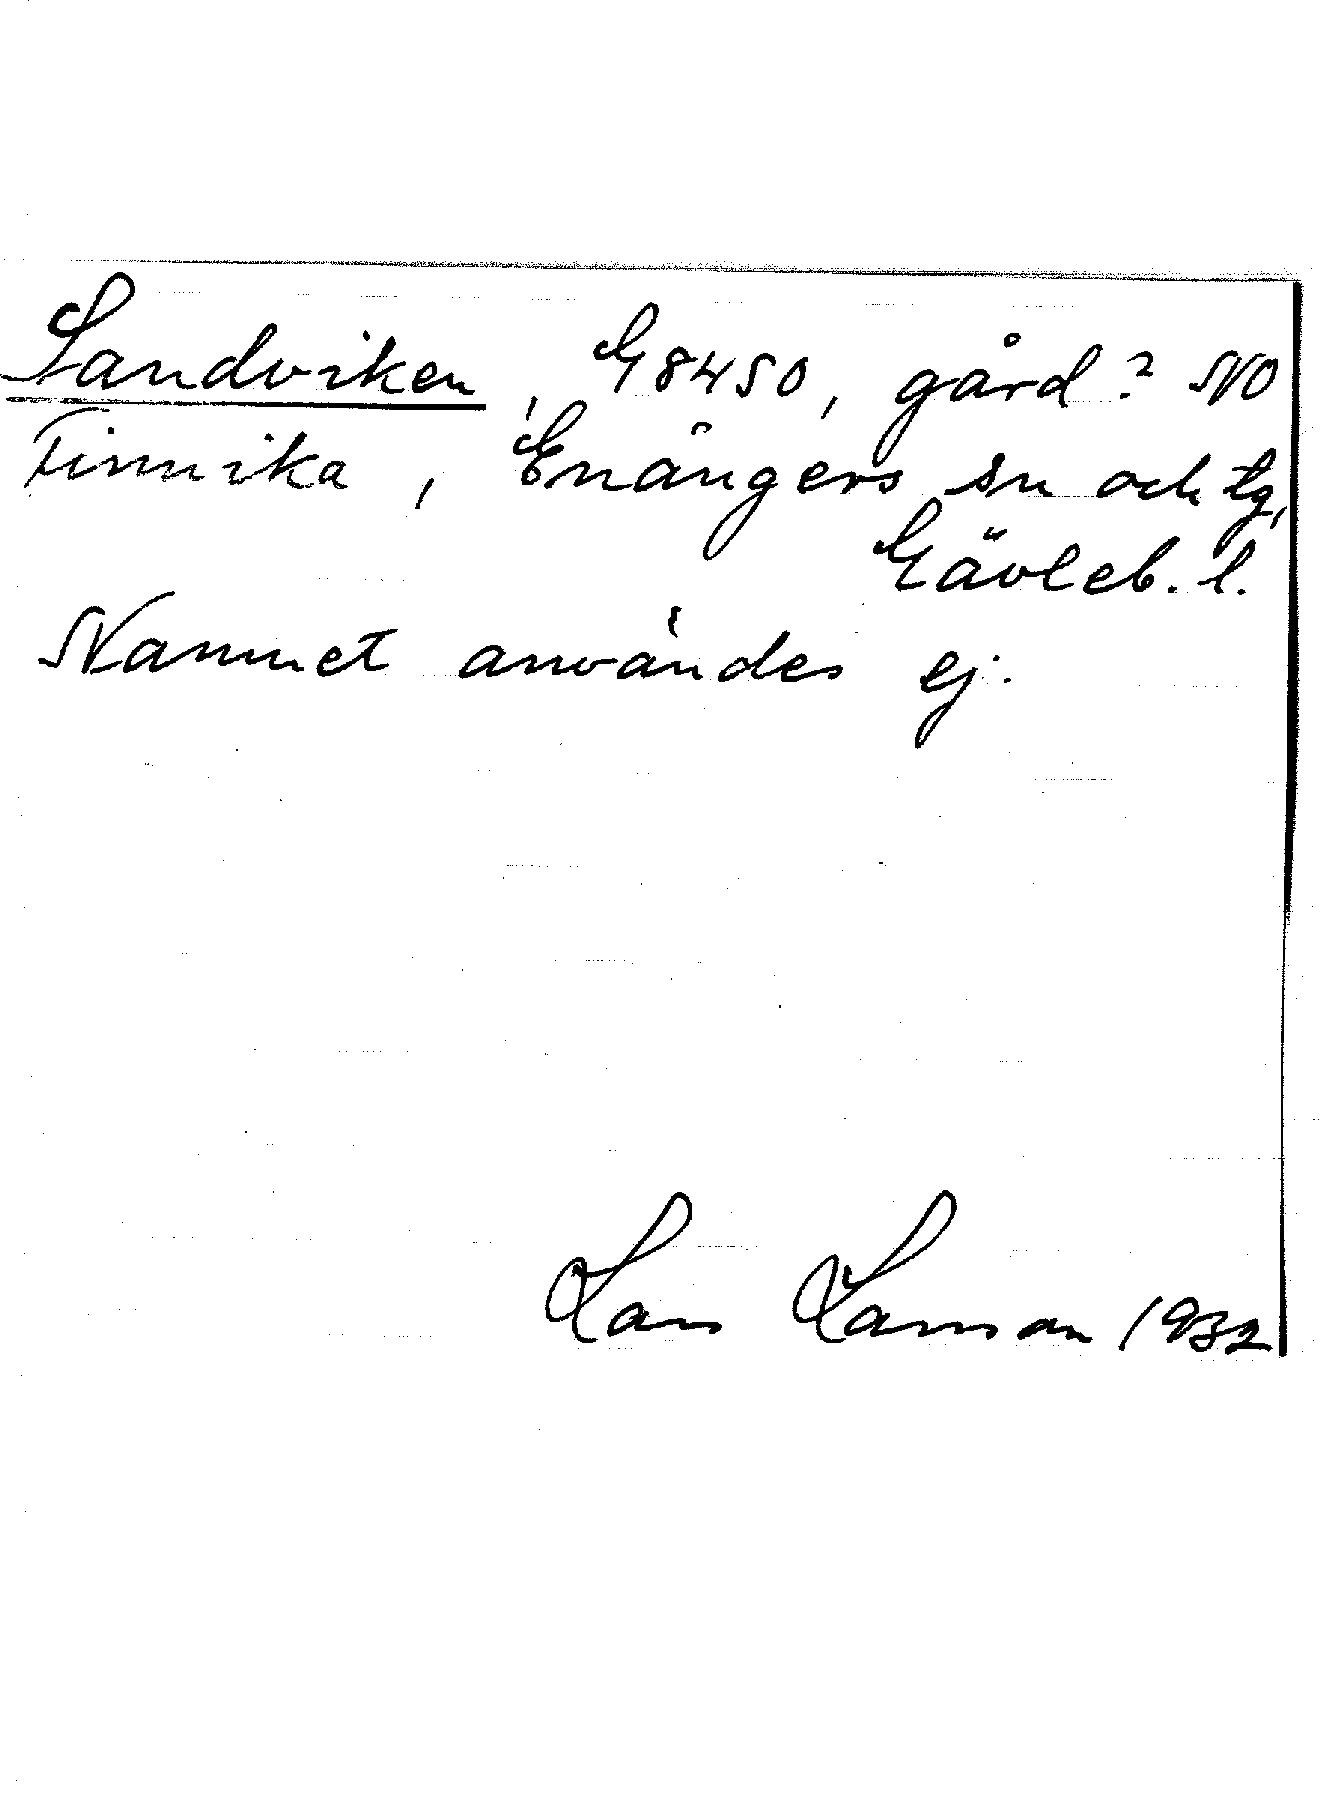 Sandviken, G8450, gård? NO
Finnvika, Enångers sn och tg,
Gävleb. l.
Namnet användes ej.
Lars Larsson 1932